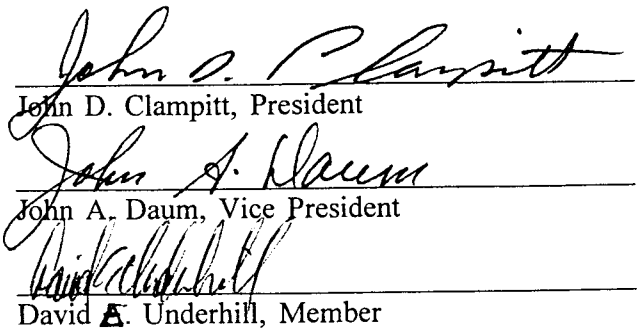 John D. Clampitt
John D. Clampitt, President
John A. Daum
John A. Daum, Vice President
David A. Underhill
David A. Underhill, Member